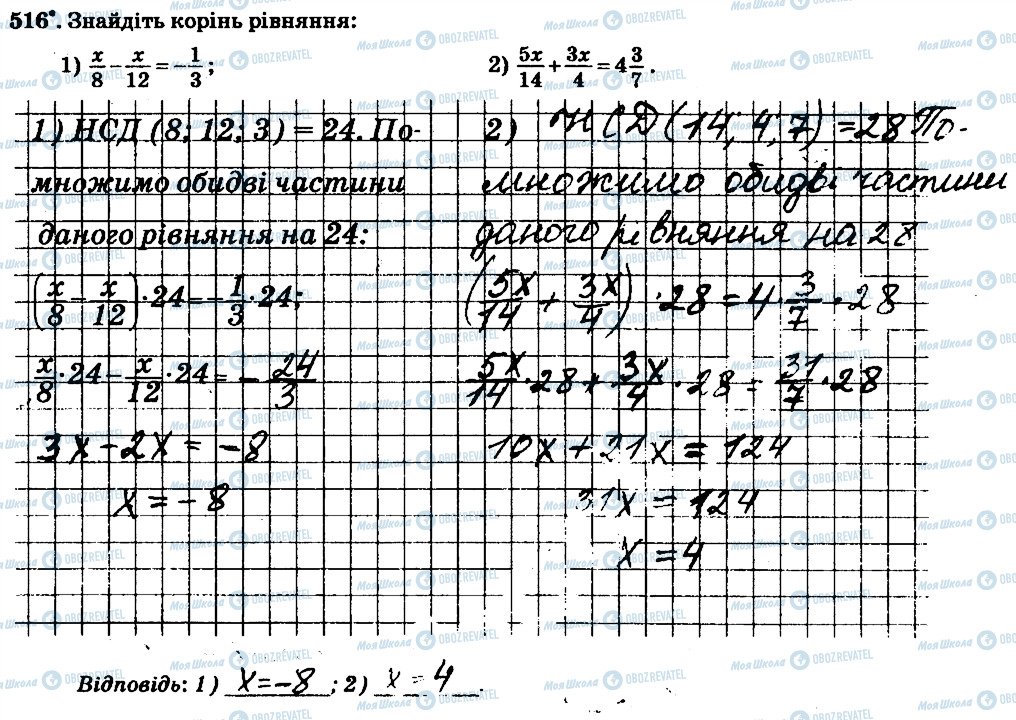 516°. Знайдіть корінь рівняння:
1) x/8 − x/12 = −1/3;
2) 5x/14 + 3x/4 = 4 3/7.
1) НСД (8; 12; 3) = 24. По-
множимо обидві частини
даного рівняння на 24:
(x/8 − x/12) · 24 = −1/3 · 24;
x/8 · 24 − x/12 · 24 = − 24/3
3x − 2x = −8
x = −8
2) НСД (14; 4; 7) = 28 По-
множимо обидві частини
даного рівняння на 28
(5x/14 + 3x/4) · 28 = 4 · 3/7 · 28
5x/14 · 28 + 3x/4 · 28 = 31/7 · 28
10x + 21x = 124
31x = 124
x = 4
Відповідь: 1) x=−8; 2) x = 4.
Моя Школа OBOZREVATEL